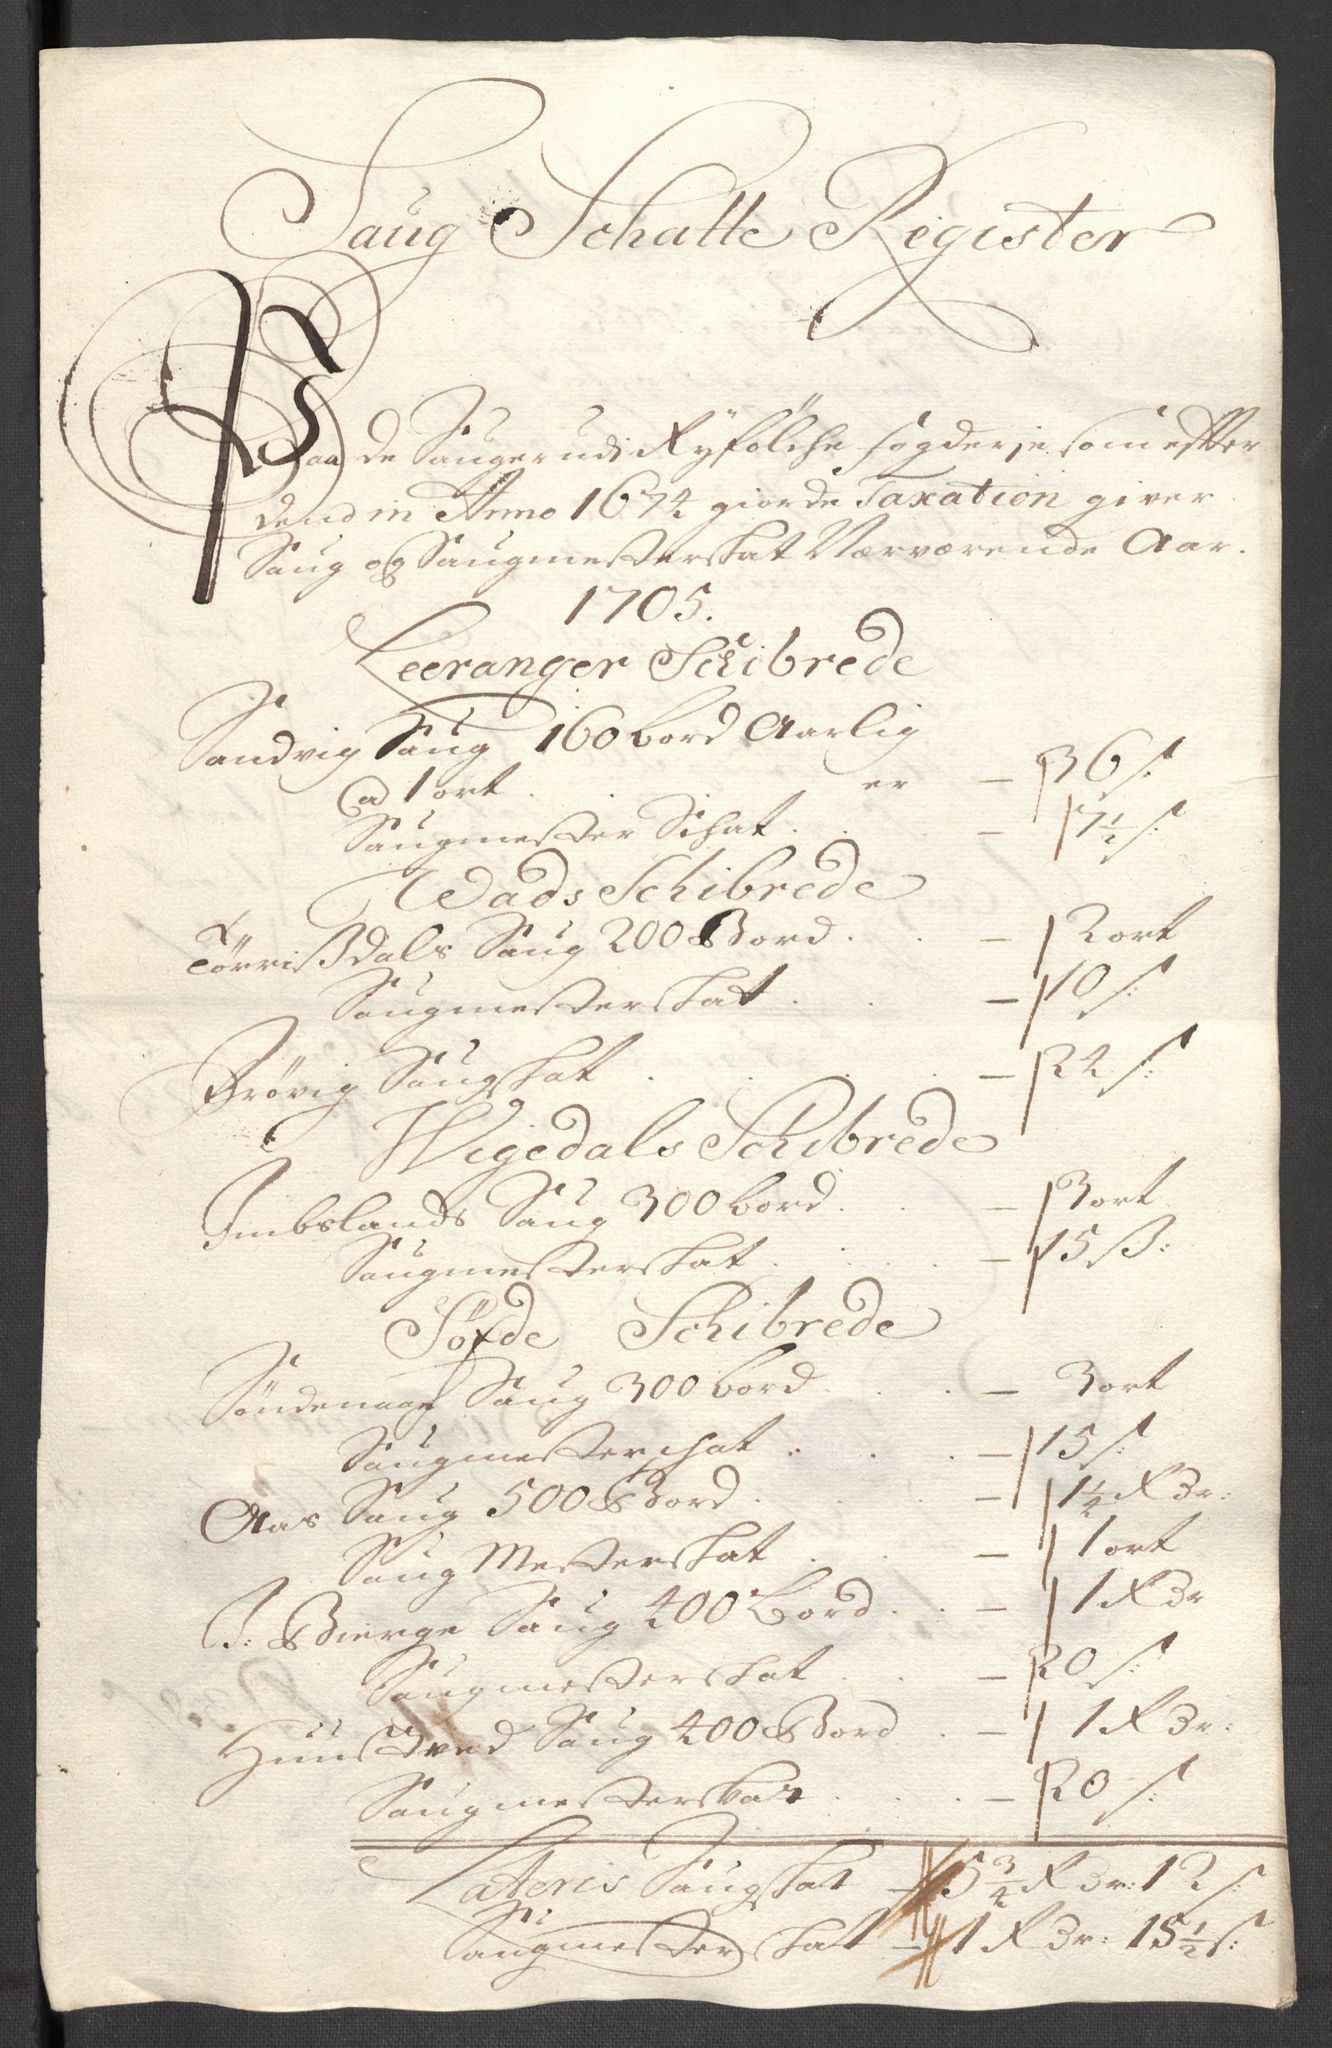 Saug Schatte Register
Paa de Sauger udi Ryfölche fogderje som efter
dend in Anno 1674 giorde Taxation giver
Saug og Saugmesterskat Nærværende Aar.
1705.
Leeranger Schibrede
Sandvig Saug 160 bord Aarlig
a 1 ort . er — 36 s:
Saugmester Schat . . — 7½ s:
Wads Schibrede
Törrisdals Saug 200 Bord . . — 2 ort
Saugmesterskat . . — 10 s:
Frövig Saugskat . . . — 24 s:
Wigedals Schibrede
Imbslands Saug 300 bord . . — 3 ort
Saugmesterskat . . . — 15 s:
Söfde Schibrede
Söndenaae Saug 300 bord . . . — 3 ort
Saugmesterschat . . . — 15 s:
Aas Saug 500 Bord . . . — 1¼ Rdr:
Saug Mesterskat . . — 1 ort
I: Bierge Saug 400 Bord . . — 1 Rdr
Saugmesterskat . . — 20 s:
Huustved Saug 400 Bord . — 1 Rdr:
Saugmesterskat . . . — 20 s:
Lateris Saugskat — 5¾ Rdr: 12 s:
Saugmesterskat — 1 Rdr: 15½ s: